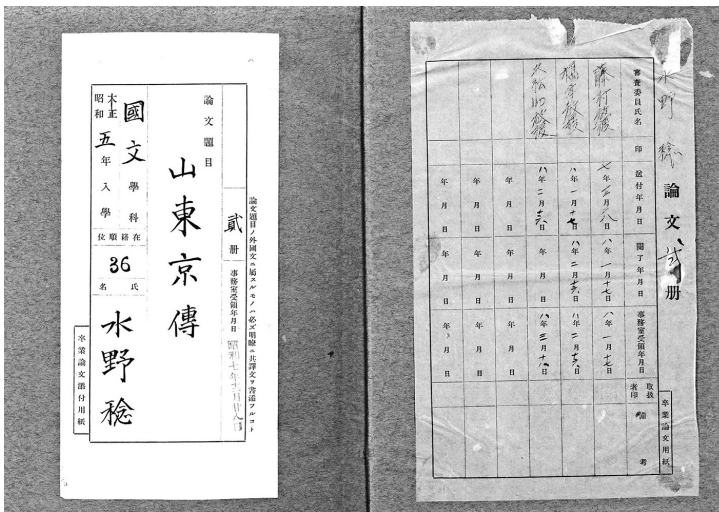 水野 稔 論文 貳 册
卒業論文用紙
審査委員氏名 印 送付年月日 閲了年月日 事務室受領年月日 取扱者印 備考
藤村 教授 七年 月 八日 八年一月十七日 八年一月十七日
橋本教授 八年一月十七日 八年二月 日 八年二月 日
久松助教授 八年二月 日 年 月 日 八年三月十 日
年 月 日 年 月 日 年 月 日
年 月 日 年 月 日 年 月 日
年 月 日 年 月 日 年 月 日
論文題目ノ外國文ニ屬スルモノハ必ズ明瞭ニ其譯文ヲ書添フルコト
貳册 事務室受領年月日 昭和七年十二月廿八日
論文題目
山東京傳
國文學科
大正
昭和 五年入學
在籍順位
36
氏名
水野稔
卒業論文添付用紙